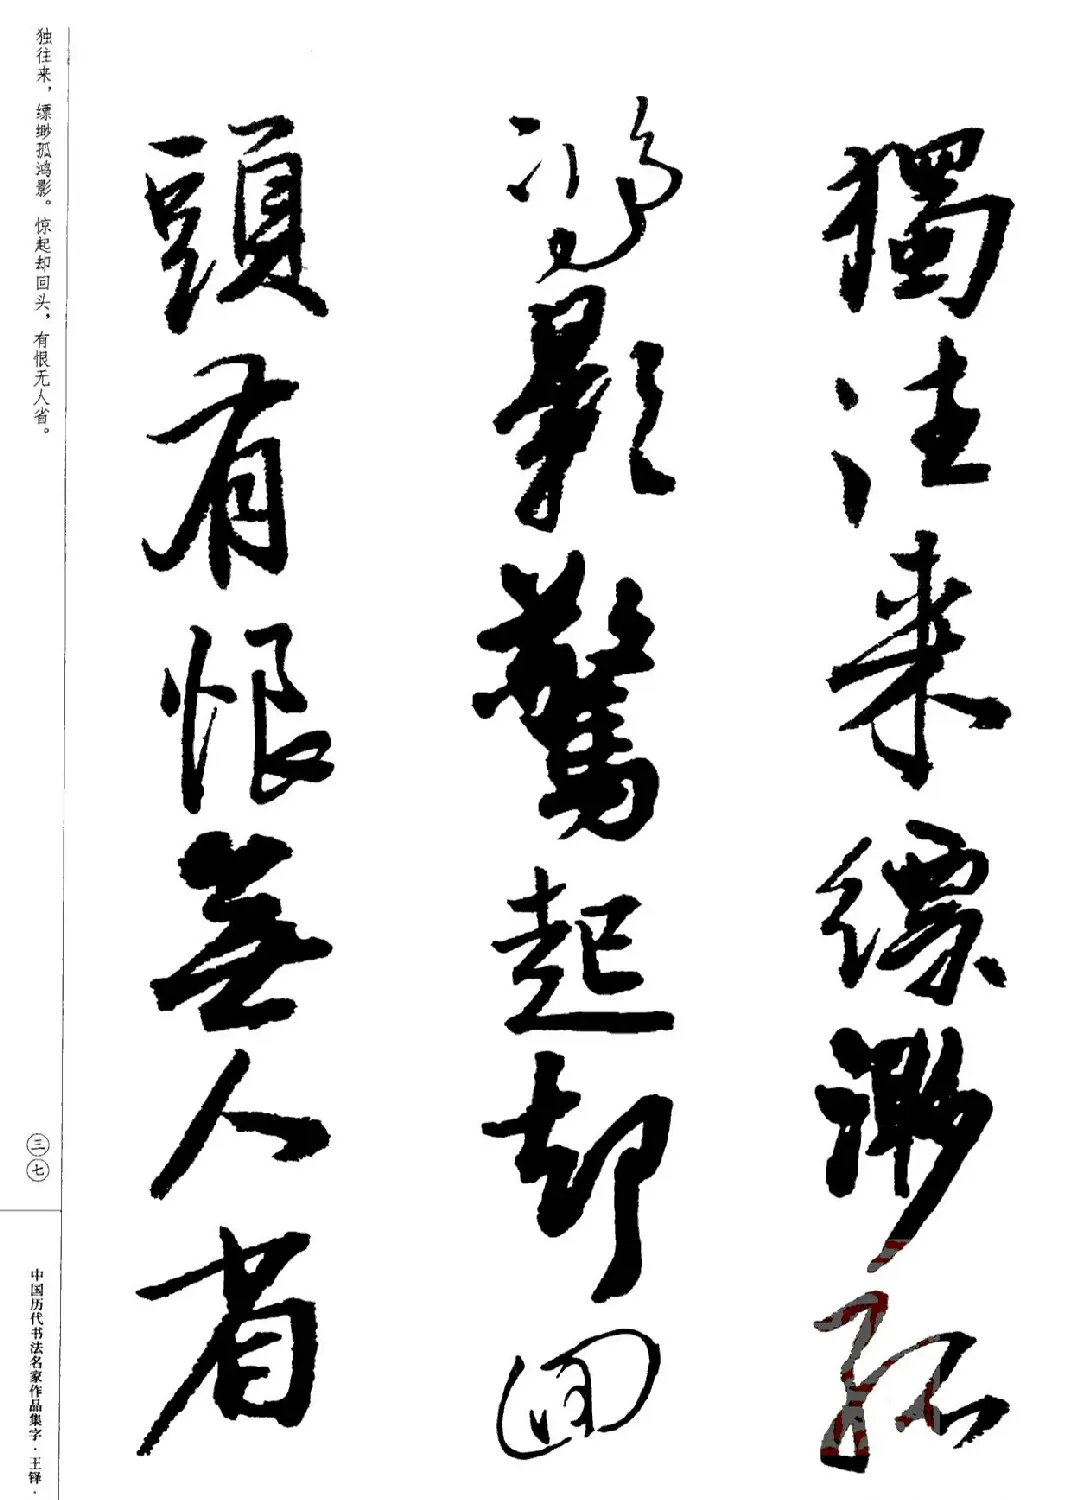 獨往来縹渺孤
鴻影驚起却回
頭有恨無人省
独往来，缥缈孤鸿影。惊起却回头，有恨无人省。
三七
中国历代书法名家作品集字·王铎·